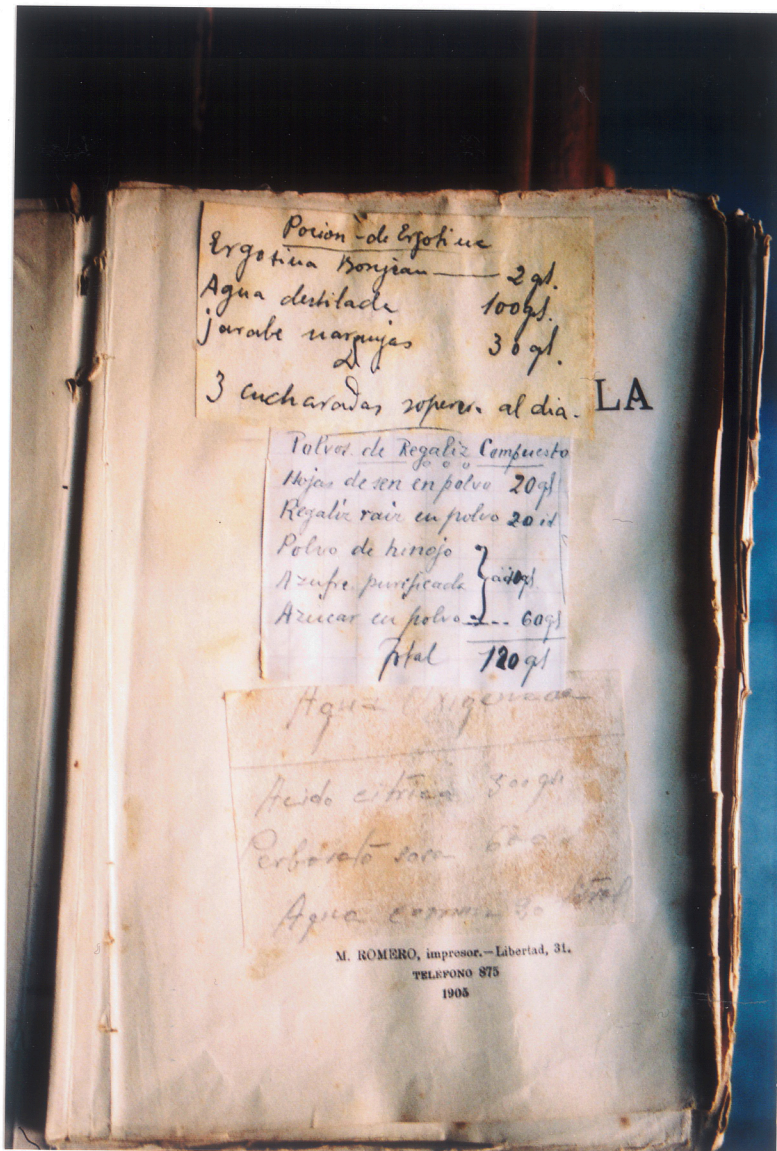 Pocion de Ergotina
Ergotina Bonjean — 2 gs.
Agua destilada 100 gs.
jarabe naranjas 30 gs.
D.
3 cucharadas soperas al dia.
LA
Polvos de Regaliz Compuesto
Hojas de sen en polvo 20 gs
Regaliz raiz en polvo 20 id
Polvo de hinojo
Azufre purificada
Azucar en polvo 60 gs
Total 120 gs
Agua Oxigenada
Acido citrico 300 grs
Perborato sosa
Agua 20
M. ROMERO, impresor.—Libertad, 31.
TELEFONO 875
1905